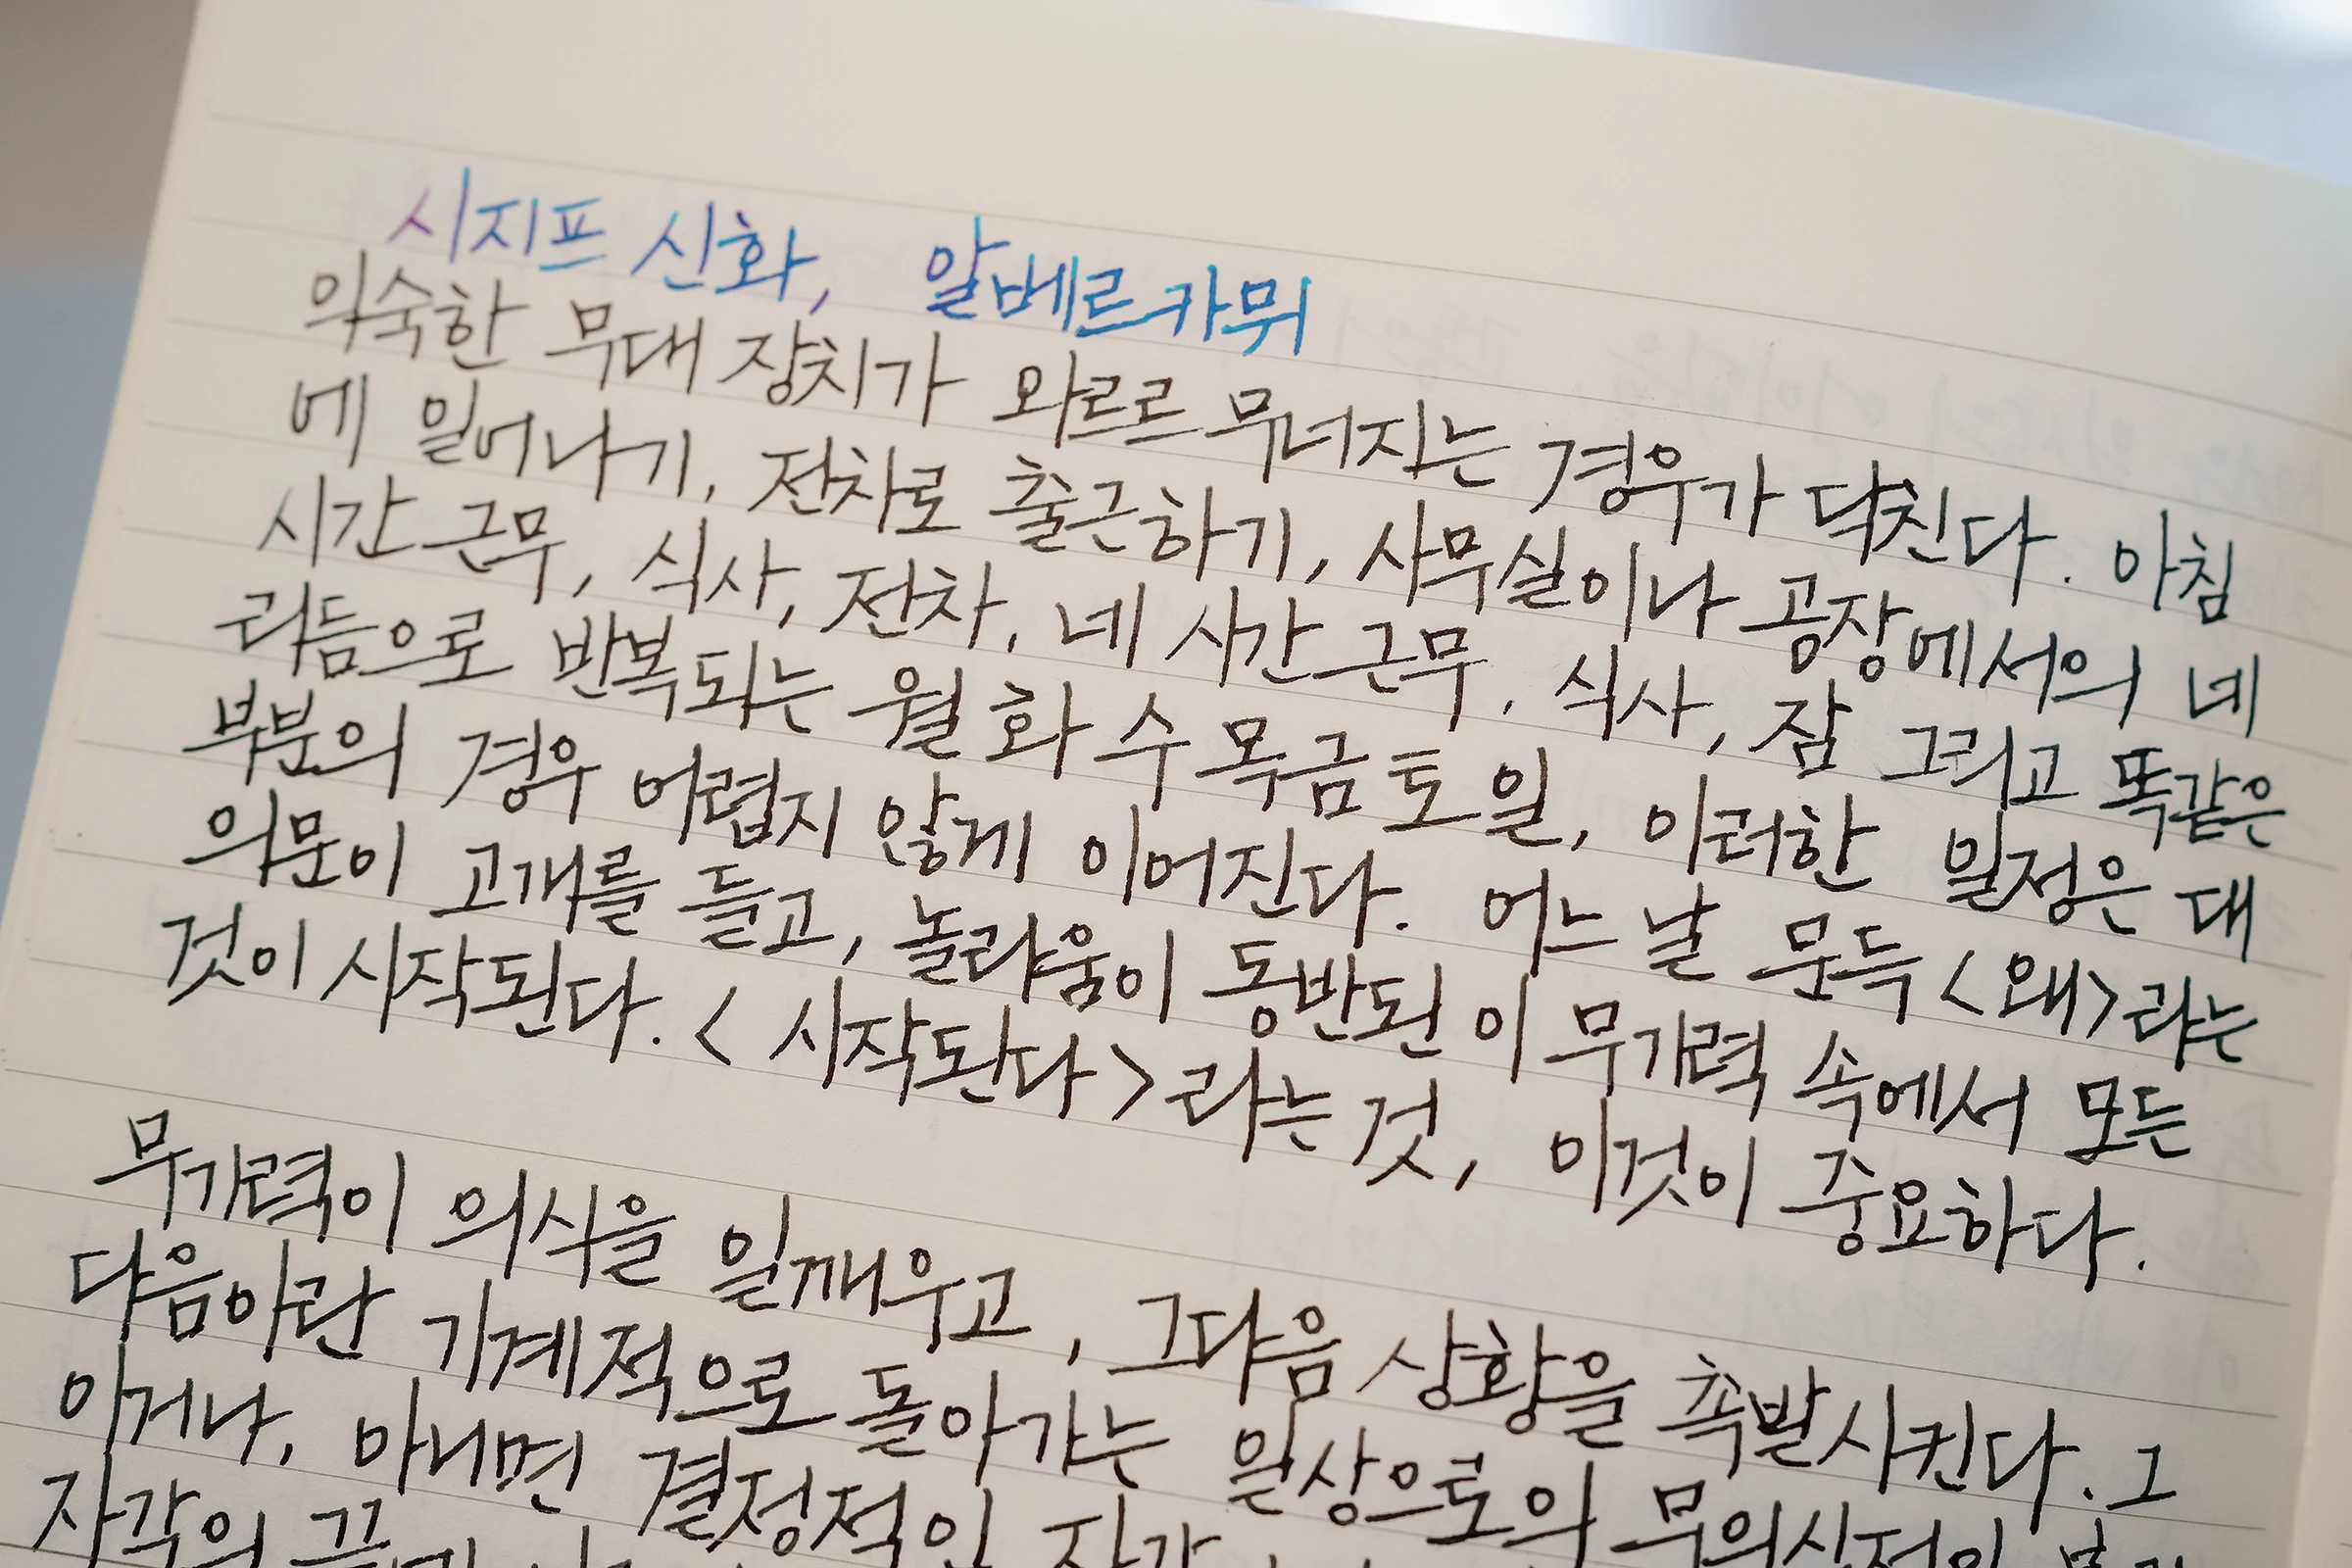 시지프 신화, 알베르카뮈
익숙한 무대 장치가 와르르 무너지는 경우가 닥친다. 아침
에 일어나기, 전차로 출근하기, 사무실이나 공장에서의 네
시간 근무, 식사, 전차, 네 시간 근무, 식사, 잠 그리고 똑같은
리듬으로 반복되는 월 화 수 목 금 토 일, 이러한 일정은 대
부분의 경우 어렵지 않게 이어진다. 어느 날 문득 <왜>라는
의문이 고개를 들고, 놀라움이 동반된 이 무기력 속에서 모든
것이 시작된다. <시작된다>라는 것, 이것이 중요하다.
무기력이 의식을 일깨우고, 그다음 상황을 촉발시킨다. 그
다음이란 기계적으로 돌아가는 일상으로의 무의식적인
이거나, 아니면 결정적인
자각의